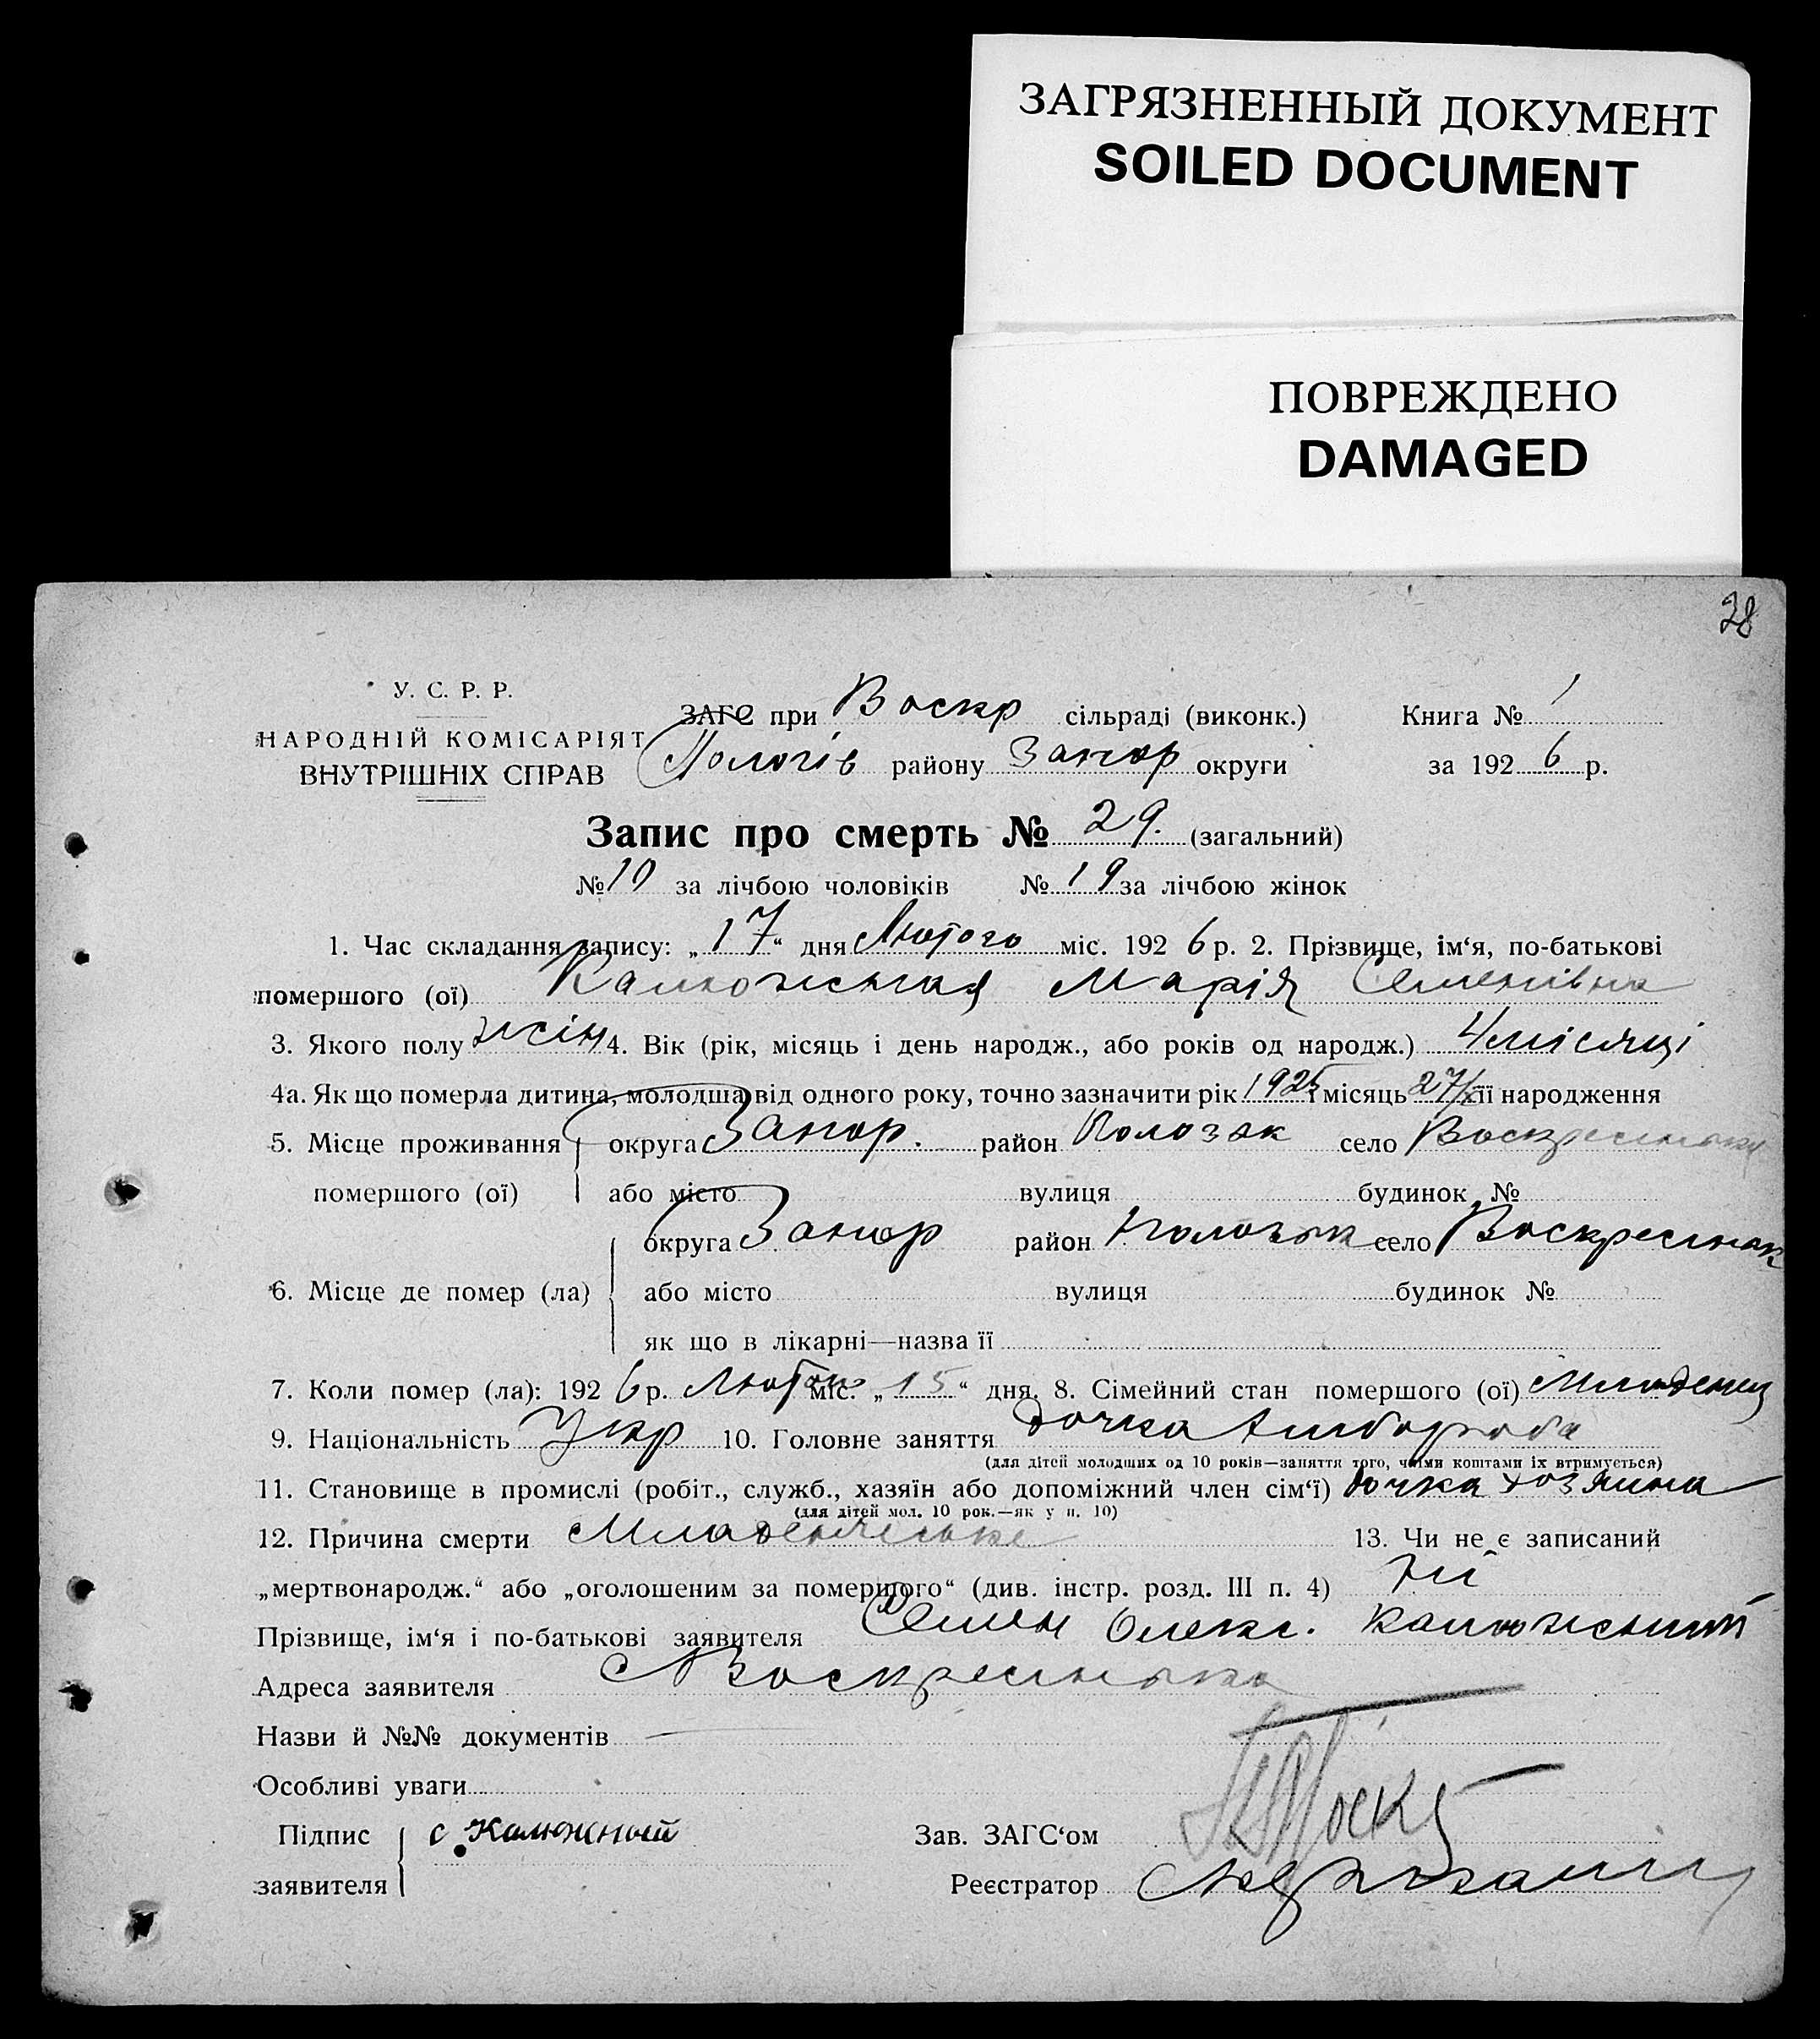 ЗАГРЯЗНЕННЫЙ ДОКУМЕНТ
SOILED DOCUMENT
ПОВРЕЖДЕНО
DAMAGED
38
У. С. Р. Р.
НАРОДНІЙ КОМІСАРІЯТ
ВНУТРІШНІХ СПРАВ
ЗАГС при Воскр сільраді (виконк.) Книга № 1
Пологів району Запор округи за 1926 р.
Запис про смерть № 29. (загальний)
№ 10 за лічбою чоловіків № 19 за лічбою жінок
1. Час складання запису: „17“ дня Лютого міс. 1926 р. 2. Прізвище, ім‘я, по-батькові
помершого (ої) Калюжная Марія Семенівна
3. Якого полу жін 4. Вік (рік, місяць і день народж., або років од народж.) 4 місяці
4а. Як що померла дитина, молодша від одного року, точно зазначити рік 1925 і місяць 27/X її народження
5. Місце проживання округа Запор. район Пологзьк село Воскресенька
помершого (ої) або місто вулиця будинок №
округа Запор район Пологзьк село Воскресеньк
6. Місце де помер (ла) або місто вулиця будинок №
як що в лікарні—назва її
7. Коли помер (ла): 1926 р. Лютого міс. „15“ дня. 8. Сімейний стан помершого (ої) Младенец
9. Національність Укр 10. Головне заняття дочка хлібороба
(для дітей молодших од 10 років—заняття того, чиїми коштами їх втримується)
11. Становище в промислі (робіт., служб., хазяїн або допоміжний член сім‘ї) дочка хозяина
(для дітей мол. 10 рок.—як у п. 10)
12. Причина смерти Младенческе 13. Чи не є записаний
„мертвонародж.“ або „оголошеним за помершого“ (див. інстр. розд. III п. 4) Ні
Прізвище, ім‘я і по-батькові заявителя Семен Олекс. Калюжний
Адреса заявителя с Воскресенька
Назви й №№ документів
Особливі уваги
Підпис с Калюжный Зав. ЗАГС‘ом
заявителя Реєстратор